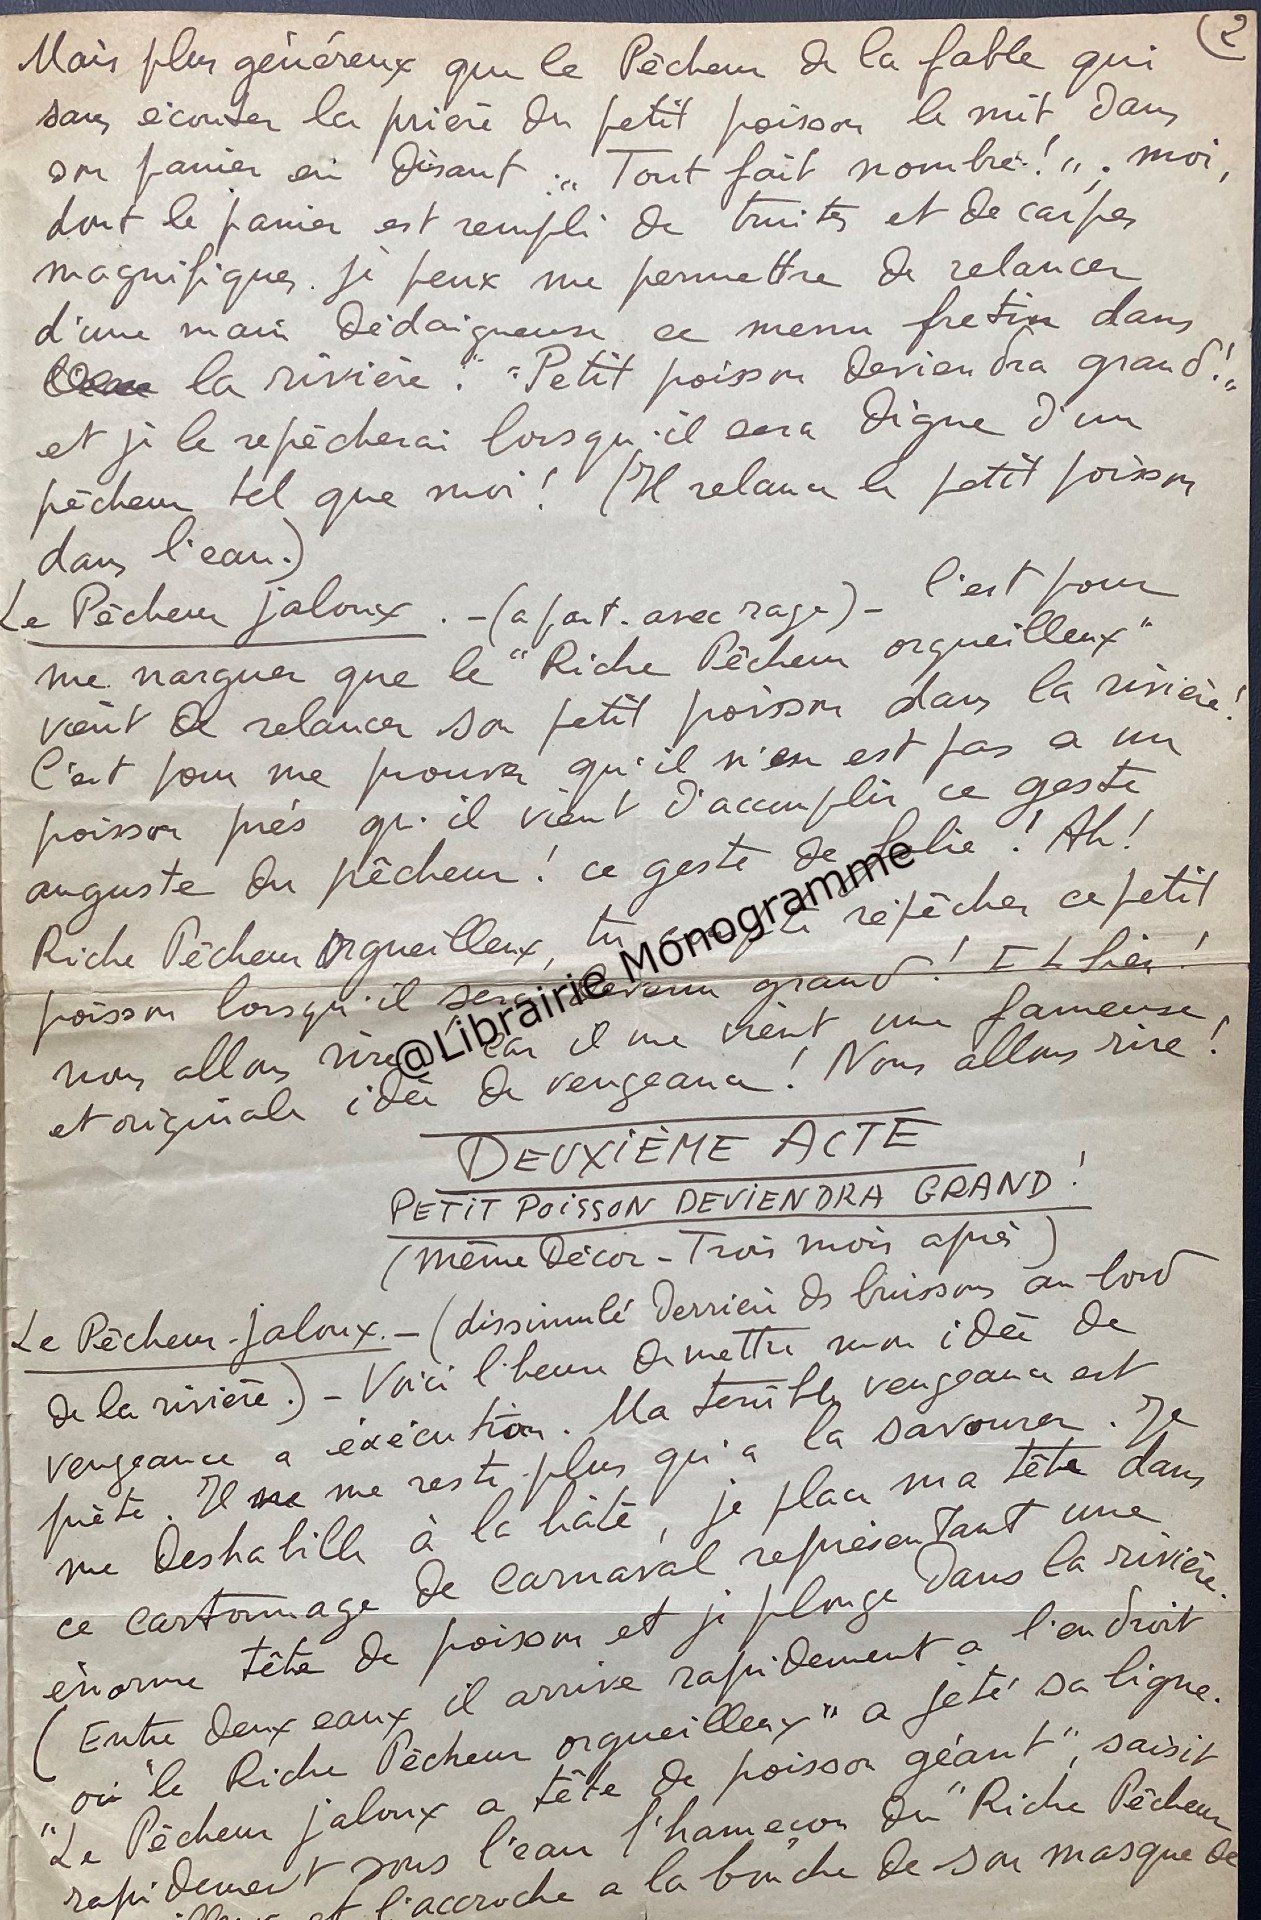 2
Mais plus généreux que le Pêcheur de la fable qui
sans écouter la prière du petit poisson le mit dans
son panier en disant : " Tout fait nombre ! " ; moi,
dont le panier est rempli de truites et de carpes
magnifiques. je peux me permettre de relancer
d'une main dédaigneuse ce menu fretin dans
la rivière : " Petit poisson deviendra grand ! "
et je le repêcherai lorsqu'il sera digne d'un
pêcheur tel que moi ! (Il relance le petit poisson
dans l'eau.)
Le Pêcheur jaloux . - (a part - avec rage) - C'est pour
me narguer que le " Riche Pêcheur orgueilleux "
vient de relancer son petit poisson dans la rivière !
C'est pour me prouver qu'il n'en est pas a un
poisson près qu'il vient d'accomplir ce geste
auguste du pêcheur ! ce geste de folie ! Ah !
Riche Pêcheur Orgueilleux, tu repêcher ce petit
poisson lorsqu'il sera devenu grand ! Et bien !
nous allons rire car il me vient une fameuse
et originale idée de vengeance ! Nous allons rire !
@Librairie Monogramme
DEUXIÈME ACTE
PETIT POISSON DEVIENDRA GRAND !
(même Décor - Trois mois après)
Le Pêcheur jaloux. - (dissimulé derrière ds buissons au bord
de la rivière.) - Voici l'heure de mettre mon idée de
vengeance a éxécution. Ma terrible vengeance est
prête. Il me reste plus qu'a la savourer. Je
me deshabille à la hâte, je place ma tête dans
ce cartonnage de carnaval représentant une
énorme tête de poisson et je plonge dans la rivière.
(Entre deux eaux il arrive rapidement a l'endroit
où "le Riche Pêcheur orgueilleux" a jeté sa ligne.
"Le Pêcheur jaloux a tête de poisson géant", saisit
rapidement sous l'eau l'hameçon du "Riche Pêcheur
et l'accroche a la bouche de son masque de